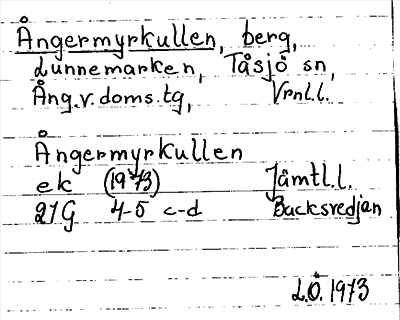 Ångermyrkullen, berg,
Lunnemarken, Tåsjö sn,
Ång.v.doms.tg, Vrnl.l.
Ångermyrkullen
ek (1973) Jämtl.l.
21G 4-5 c-d Backsvedjan
L.Ö. 1973